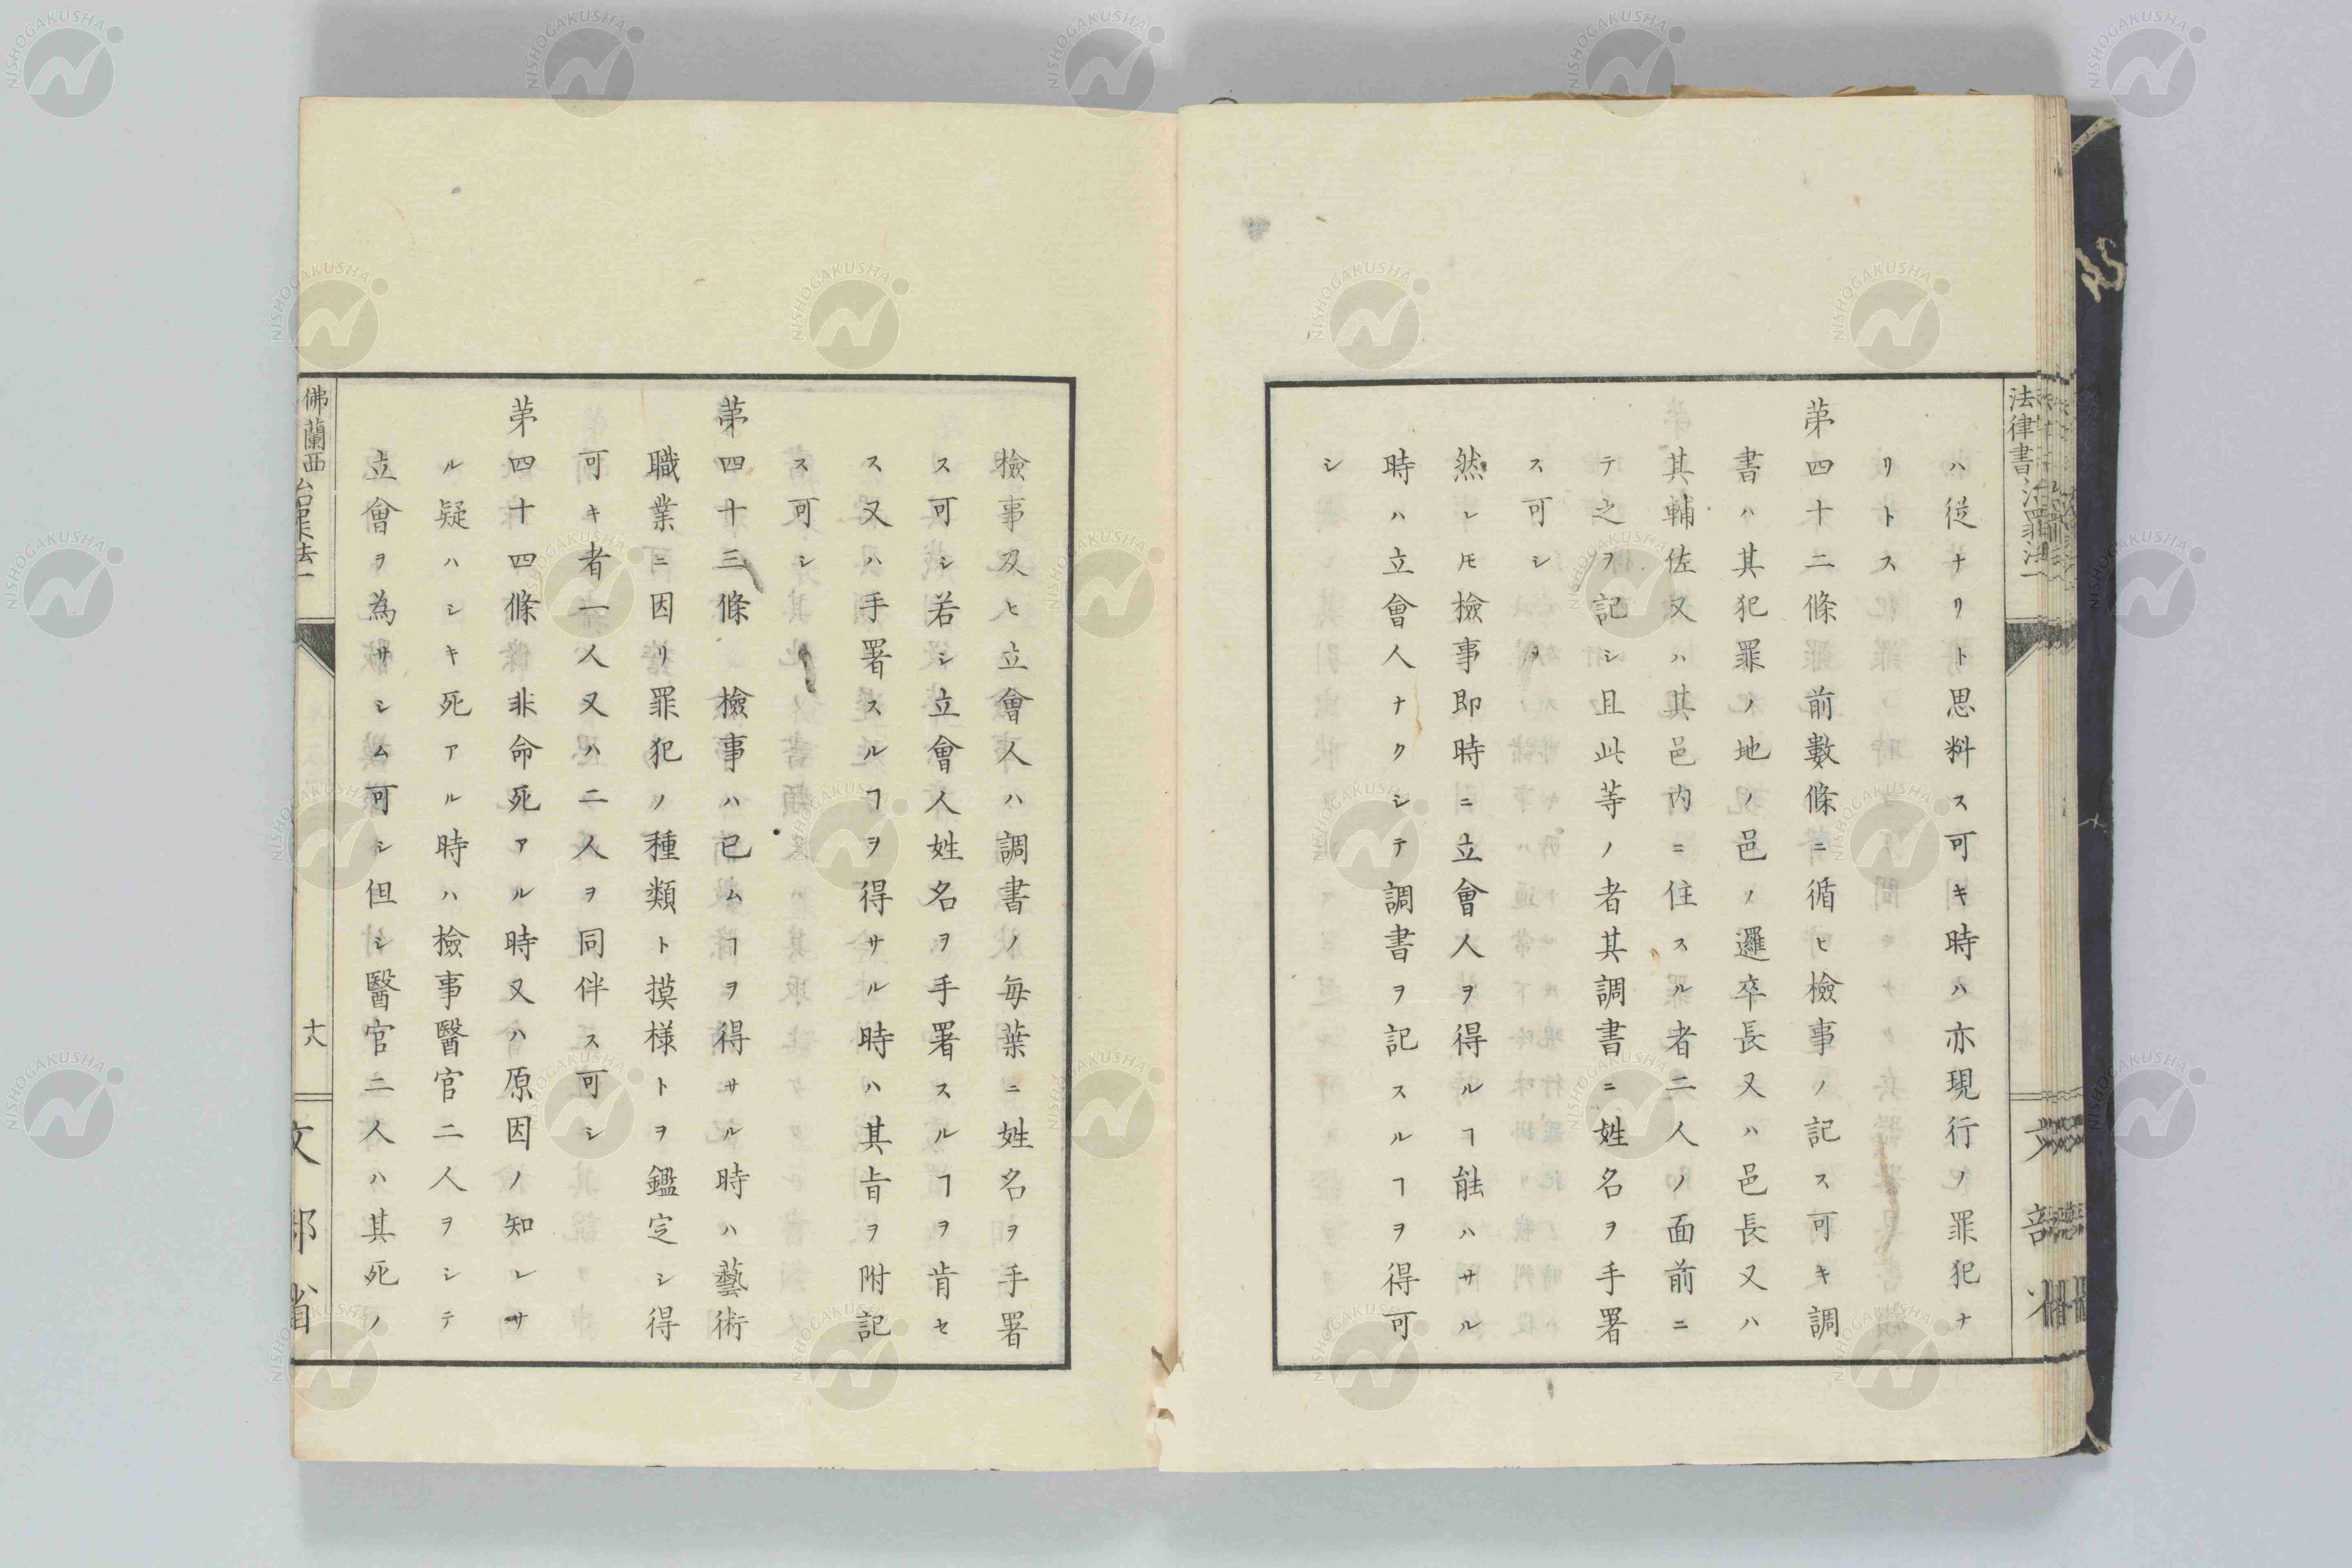 ハ従ナリト思料ス可キ時ハ亦現行ノ罪犯ナ
リトス
苐四十二條前數條ニ循ヒ檢事ノ記ス可キ調
書ハ其犯罪ノ地ノ邑ノ邏卒長又ハ邑長又ハ
其輔佐又ハ其邑内ニ住スル者二人ノ面前ニ
テ之ヲ記シ且此等ノ者其調書ニ姓名ヲ手署
ス可シ
然レ𪜈檢事即時ニ立會人ヲ得ルヿ能ハサル
時ハ立會人ナクシテ調書ヲ記スルヿヲ得可
シ
檢事及ヒ立會人ハ調書ノ毎葉ニ姓名ヲ手署
ス可シ若シ立會人姓名ヲ手署スルヿヲ肯セ
ス又ハ手署スルヿヲ得サル時ハ其㫖ヲ附記
ス可シ
苐四十三條 檢事ハ已ムヿヲ得サル時ハ藝術
職業ニ因リ罪犯ノ種類ト摸様トヲ鑑定シ得
可キ者一人又ハ二人ヲ同伴ス可シ
苐四十四條非命死アル時又ハ原因ノ知レサ
ル疑ハシキ死アル時ハ檢事醫官二人ヲシテ
立會ヲ為サシム可シ但シ醫官二人ハ其死ノ
佛蘭西治罪法一
十八
文部省
法律書
NISHOGAKUSHA